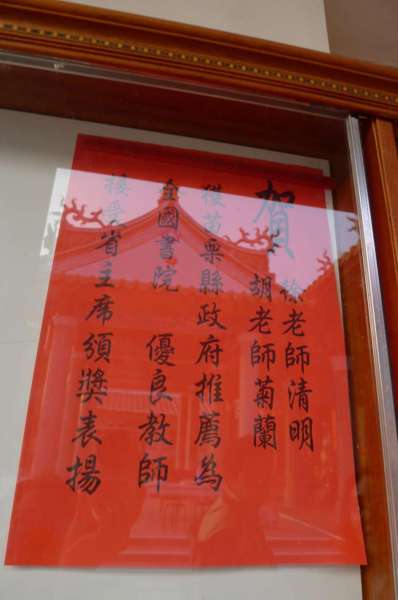 賀
徐老師清明
胡老師菊蘭
獲苗栗縣政府推薦為
全國書院 優良教師
接受省主席頒獎表揚